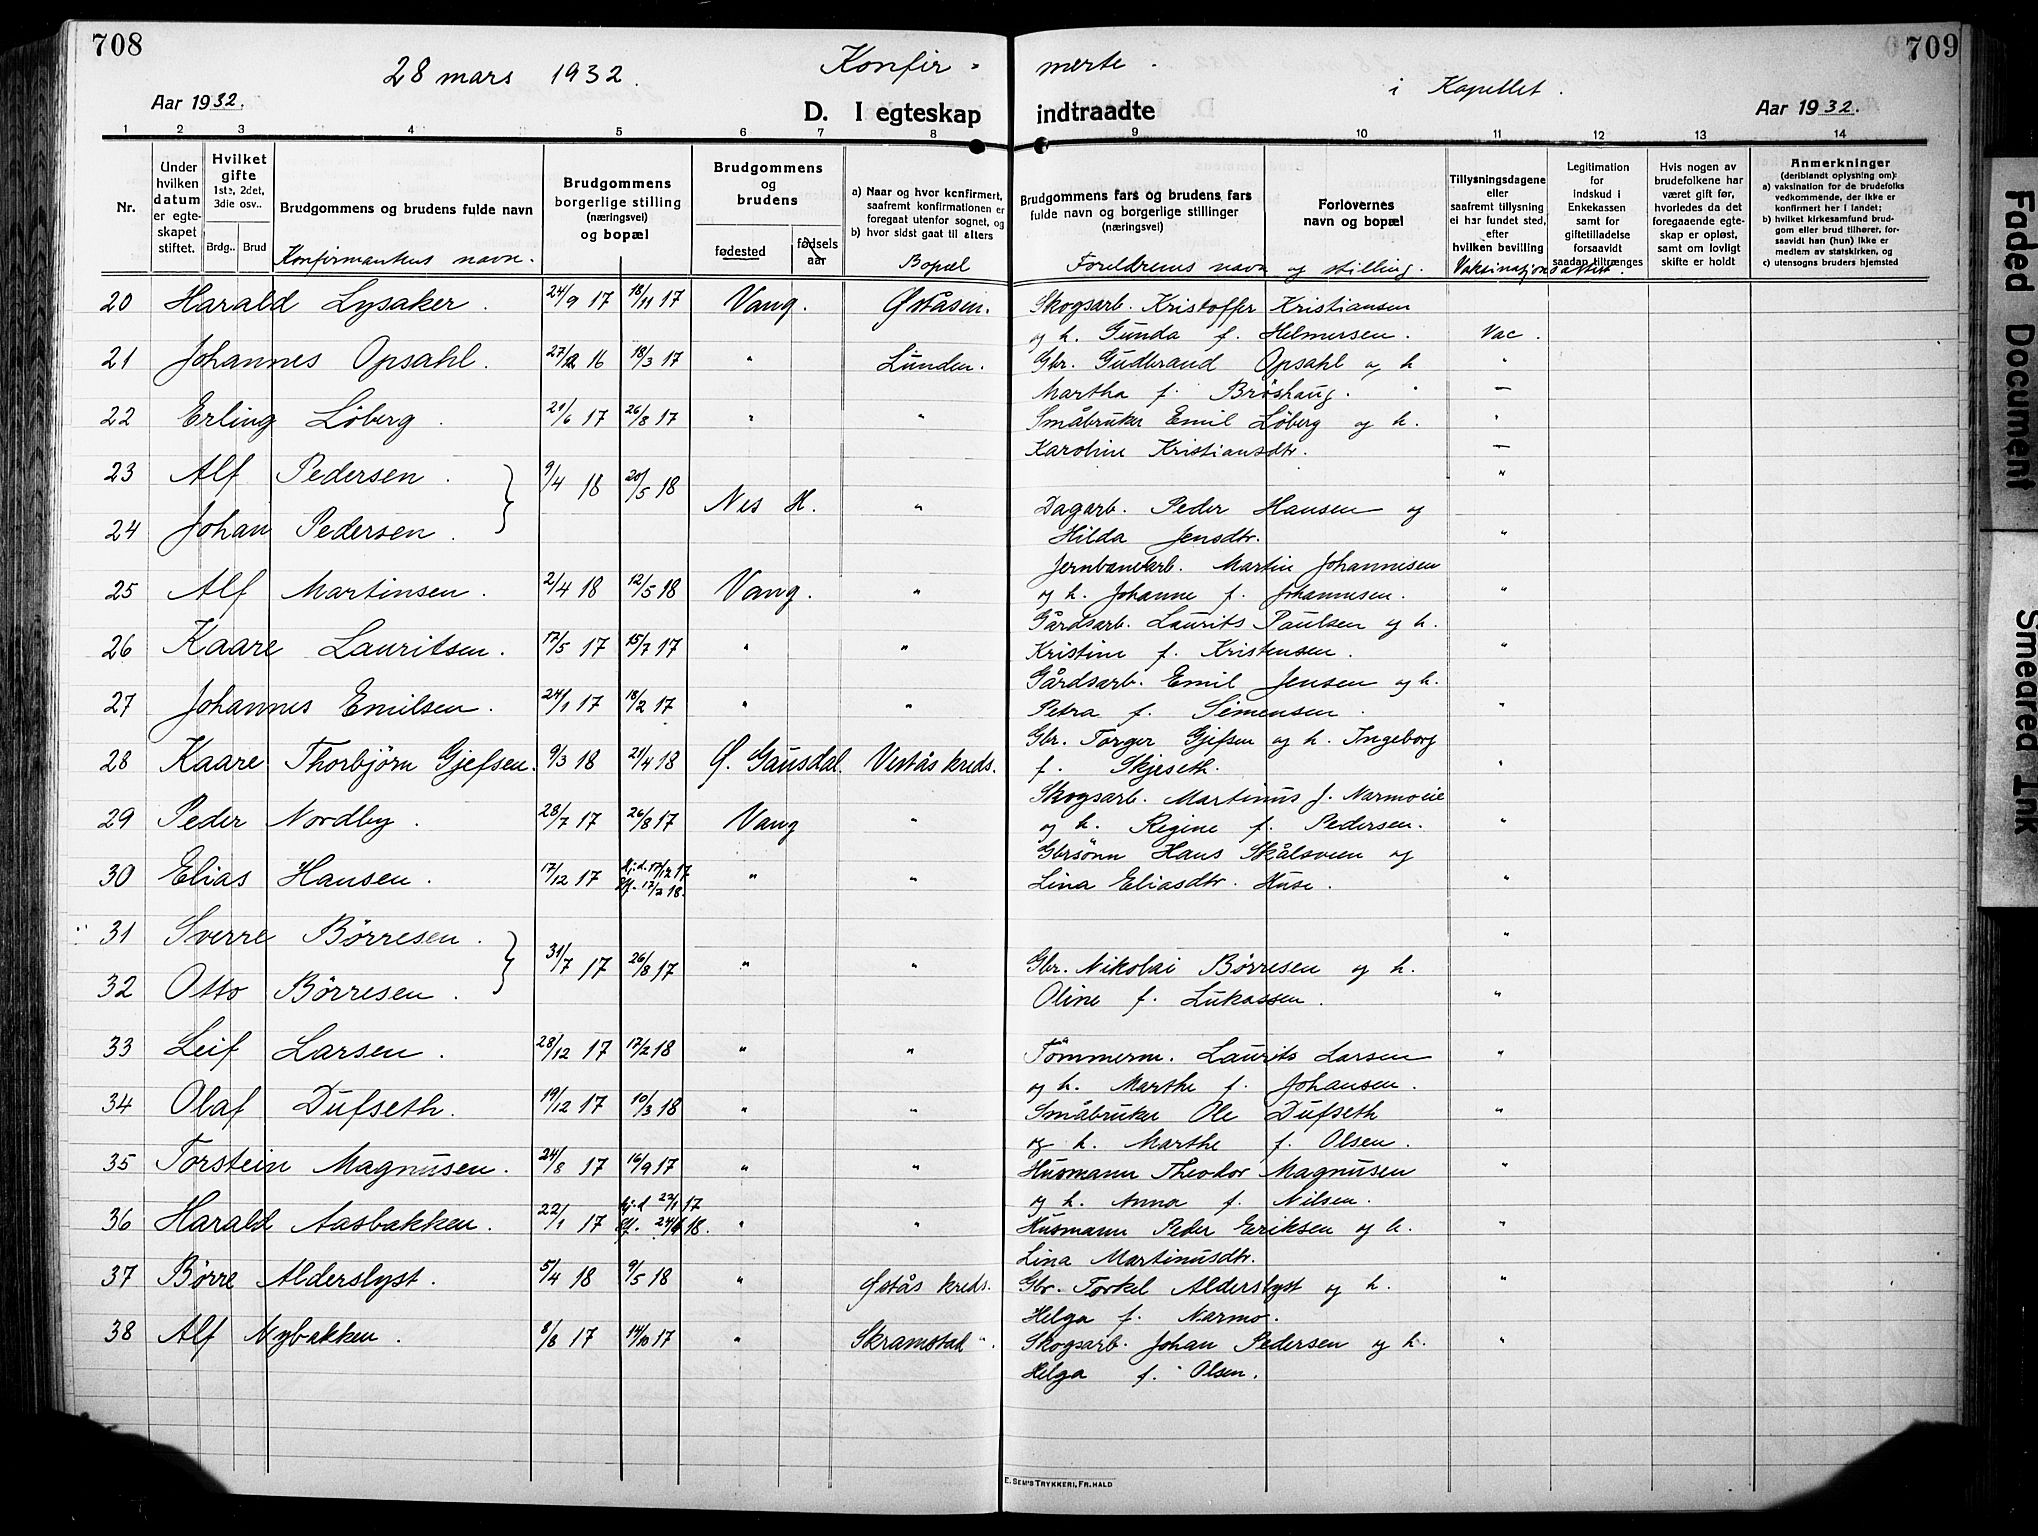 708
709
28 mars 1932.
Konfir-
merte.
i Kapellet.
Aar 1932.
D. I egteskap
indtraadte
Aar 1932.
1 2 3 4 5 6 7 8 9 10 11 12 13 14
Nr.
Under hvilken datum er egteskapet stiftet.
Hvilket gifte 1ste, 2det, 3die osv..
Brdg.. Brud
Brudgommens og brudens fulde navn
Konfirmantens navn.
Brudgommens borgerlige stilling (næringsvei) og bopæl
Brudgommens og brudens
fødested
fødselsaar
a) Naar og hvor konfirmert, saafremt konfirmationen er foregaat utenfor sognet, og
b) hvor sidst gaat til alters
Bopæl
Brudgommens fars og brudens fars fulde navn og borgerlige stillinger (næringsvei)
Foreldrenes navn og stilling.
Forlovernes navn og bopæl
Tillysningsdagene eller saafremt tillysning ei har fundet sted, efter hvilken bevilling
Vaksinationsattest.
Legitimation for indskud i Enkekassen samt for giftetilladelse forsaavidt saadan tiltrænges
Hvis nogen av brudefolkene har været gift før, hvorledes da det foregaaende egteskap er opløst, samt om lovligt skifte er holdt
Anmerkninger (deriblandt oplysning om):
a) vaksination for de brudefolks vedkommende, der ikke er konfirmert her i landet;
b) hvilket kirkesamfund brudgom eller brud tilhører, forsaavidt han (hun) ikke er medlem av statskirken, og
c) utensogns bruders hjemsted
20 Harald Lysaker. 24/9 17 18/11 17 Vang. Øståsen. Skogsarb. Kristoffer Kristiansen
og h. Gunda f. Helmersen. Vac.
21 Johannes Opsahl. 27/12 16 18/3 17 " Lunden. Gbr. Gudbrand Opsahl og h "
Martha f. Brøshaug. —
22 Erling Løberg. 21/6 17 26/8 17 " " Småbruker Emil Løberg og h. "
Karoline Kristiansdtr. —
23 Alf Pedersen. } 9/4 18 20/5 18 "
Nes H. " Dagarb. Peder Hansen og
24 Johan Pedersen. Hilda Jensdtr. "
Jernbanearb. Martin Johannesen
25 Alf Martinsen. 2/4 18 12/5 18 Vang. " og h. Johanne f. Johannesen. "
Gårdsarb. Laurits Paulsen og h.
26 Kaare Lauritsen. 17/5 17 15/7 17 " " Kristine f. Kristensen. "
Gårdsarb. Emil Jensen og h.
27 Johannes Emilsen. 24/1 17 18/2 17 " " Petra f. Simensen. "
Gbr. Torger Gjefsen og h. Ingeborg
28 Kaare Thorbjørn Gjefsen. 9/3 18 21/4 18 Ø. Gausdal. Veståskreds. f. Skjeseth. "
Skogsarb. Martinus J. Narmoeie
29 Peder Nordby. 28/7 17 26/8 17 Vang " og h. Regine f. Pedersen. "
Gbrsønn Hans Skålsveen og
30 Elias Hansen. 17/12 17 Hj.d. 17/12 17
St. 17/2 18. " " Lina Eliasdtr. Huse. "
31 Sverre Børresen. } "
31/7 17 26/8 17 " " Gbr. Nikolai Børresen og h.
32 Otto Børresen. Oline f. Lukassen. "
33 Leif Larsen. 28/12 17 17/2 18 " " Tømmerm. Laurits Larsen "
og h. Marthe f. Johansen.
34 Olaf Dufseth. 19/12 17 10/3 18 " " Småbruker Ole Dufseth "
og h. Marthe f. Olsen.
35 Torstein Magnusen. 24/8 17 16/9 17 " " Husmann Theodor Magnusen "
og h. Anna f. Nilsen.
36 Harald Aasbakken. 22/1 17 Hj.d 17
18. " " Husmann Peder Eriksen og h. "
Lina Martinusdtr.
37 Børre Alderslyst. 5/4 18 9/5 18 " Øståskreds. Gbr. Torkel Alderslyst og h. "
Helga f. Narmo.
38 Alf Nybakken. 8/8 17 14/10 17 " Skramstad ". Skogsarb. Johan Pedersen og h. "
Helga f. Olsen.
E. SEM'S TRYKKERI, FR.HALD
Faded Document
Smeared Ink